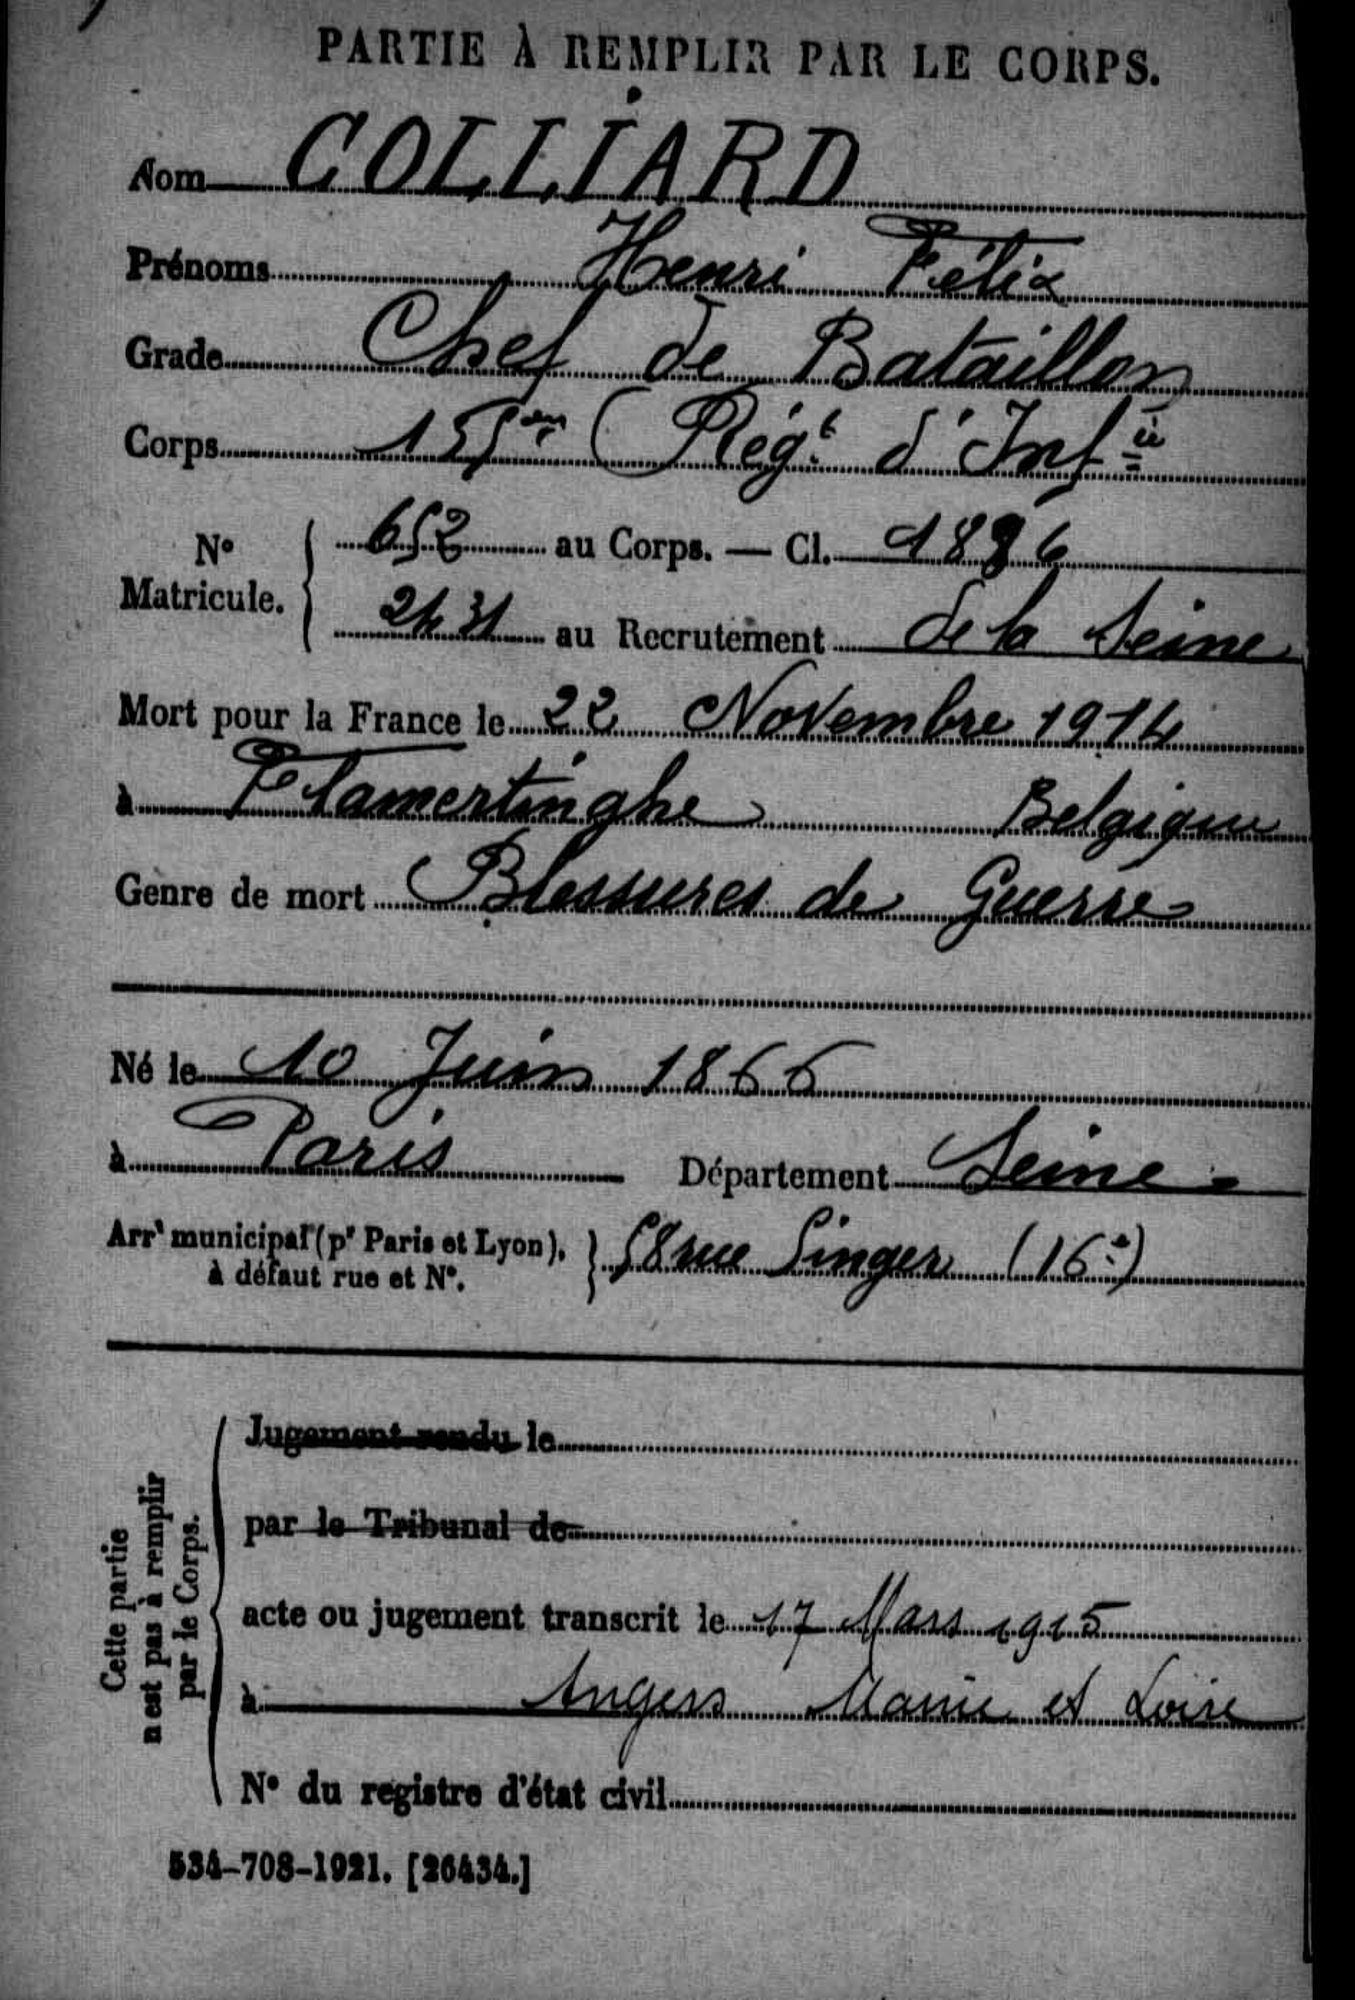 PARTIE À REMPLIR PAR LE CORPS.
Nom COLLIARD
Prénoms Henri Félix
Grade Chef de Bataillon
Corps 155me Régt d'Infie
No Matricule. 652 au Corps. — Cl. 1886
2431 au Recrutement de la Seine
Mort pour la France le 22 Novembre 1914
à Flamertinghe Belgique
Genre de mort Blessures de Guerre
Né le 10 Juin 1866
à Paris Département Seine
Arrt municipal (pr Paris et Lyon), à défaut rue et No. 58 rue Singer (16e)
Cette partie n'est pas à remplir par le Corps.
Jugement rendu le
par le Tribunal de
acte ou jugement transcrit le 17 Mars 1915
à Angers Maine et Loire
No du registre d'état civil
534-708-1921. [26434.]